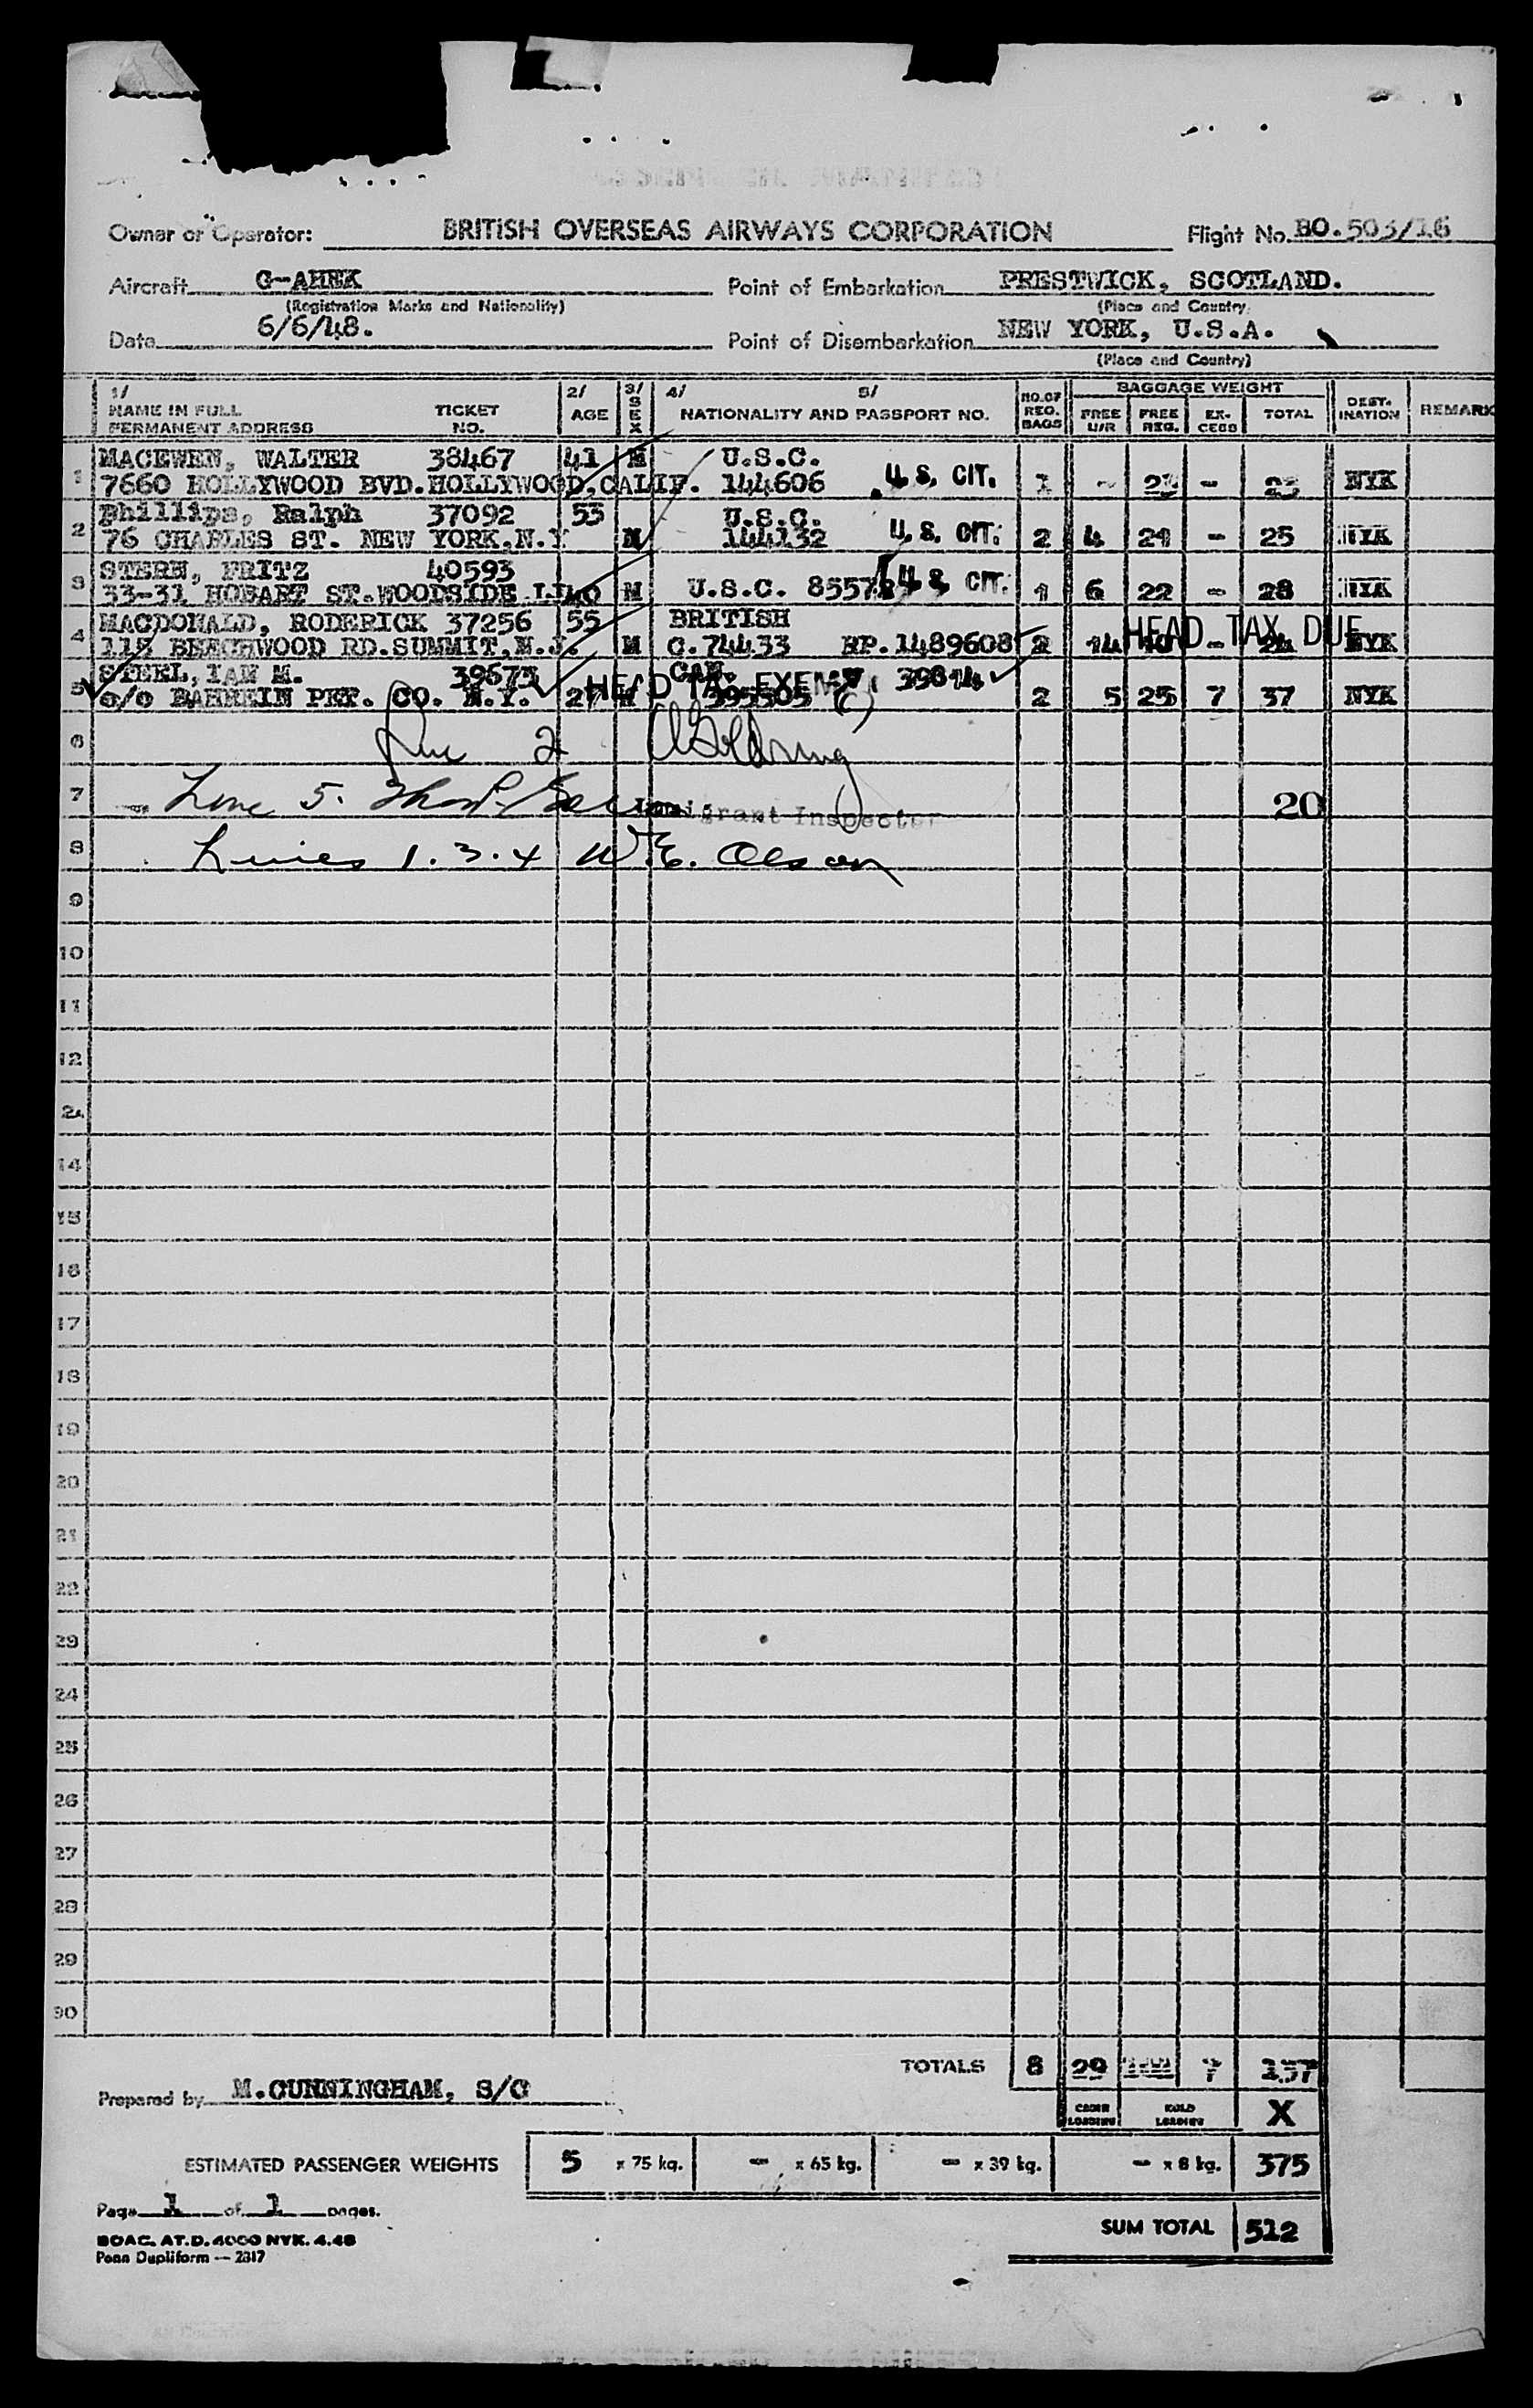 Owner or Operator: BRITISH OVERSEAS AIRWAYS CORPORATION Flight No. BO.503/16
Aircraft G-AHEK Point of Embarkation PRESTWICK, SCOTLAND.
(Registration Marks and Nationality) (Place and Country)
Date 6/6/48. Point of Disembarkation NEW YORK, U.S.A.
(Place and Country)
1/ NAME IN FULL PERMANENT ADDRESS TICKET NO. 2/ AGE 3/ SEX 4/ 5/ NATIONALITY AND PASSPORT NO. NO.OF REG. BAGS BAGGAGE WEIGHT FREE U/R FREE REG. EX-CESS TOTAL DEST-INATION REMARK
1 MACEWEN, WALTER 38467 41 M U.S.C.
7660 HOLLYWOOD BVD.HOLLYWOOD,CALIF. 144606 U.S. CIT. 1 - 23 - 23 NYK
2 Phillips, Ralph 37092 53 U.S.C.
76 CHARLES ST. NEW YORK,N.Y M 144132 U.S. CIT. 2 4 21 - 25 NYK
3 STERN, FRITZ 40593
33-31 HOBART ST.WOODSIDE L.I. 40 M U.S.C. 85573 U.S. CIT. 1 6 22 - 28 NYK
4 MACDONALD, RODERICK 37256 55 BRITISH
118 BEECHWOOD RD.SUMMIT,N.J. M C.74433 RP.1489608 2 14 10 - 24 NYK
HEAD TAX DUE
5 STEEL, IAN M. 39673 CAN. 39814
c/o BAHREIN PET. CO. N.Y. 27 M 395505 2 5 25 7 37 NYK
HEAD TAX EXEMPT (C)
6 Line 2
7 Line 5. 20
Immigrant Inspector
8 Lines 1. 3. 4 W.E. Olson
9
10
11
12
14
15
16
17
18
19
20
21
22
23
24
25
26
27
28
29
30
TOTALS 8 29 7 137
Prepared by M.CUNNINGHAM, S/C
CABIN LOADING HOLD LOADING X
ESTIMATED PASSENGER WEIGHTS 5 x 75 kg. - x 65 kg. - x 39 kg. - x 8 kg. 375
Page 1 of 1 pages.
SUM TOTAL 512
BOAC. AT.D. 4000 NYK. 4.48
Penn Dupliform — 2817